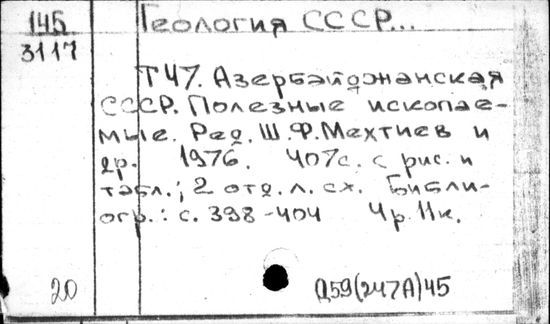 145
3117
Геология СССР...
Т 47. Азербайджанская
СССР. Полезные ископае-
мые. Ред. Ш.Ф.Мехтиев и
др. 1976. 407с. с рис. и
табл.; 2 отд. л. сх. Библи-
огр.: с. 398-404 4р.11к.
20
Д59(247А)45